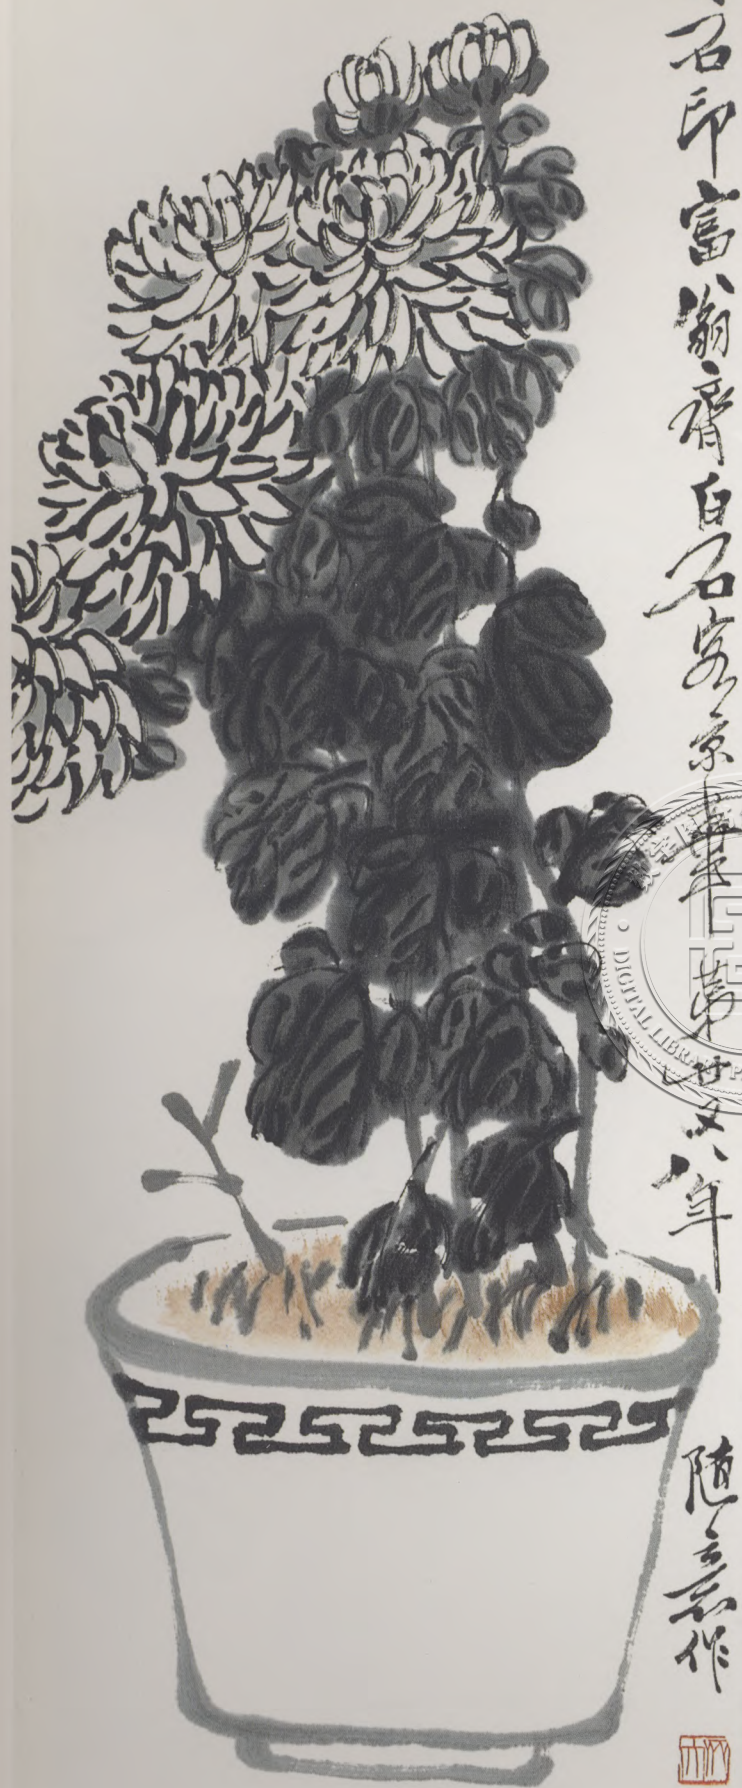 石印富翁齊白石客京華第廿又八年
隨意作
DIGITAL LIBRARY